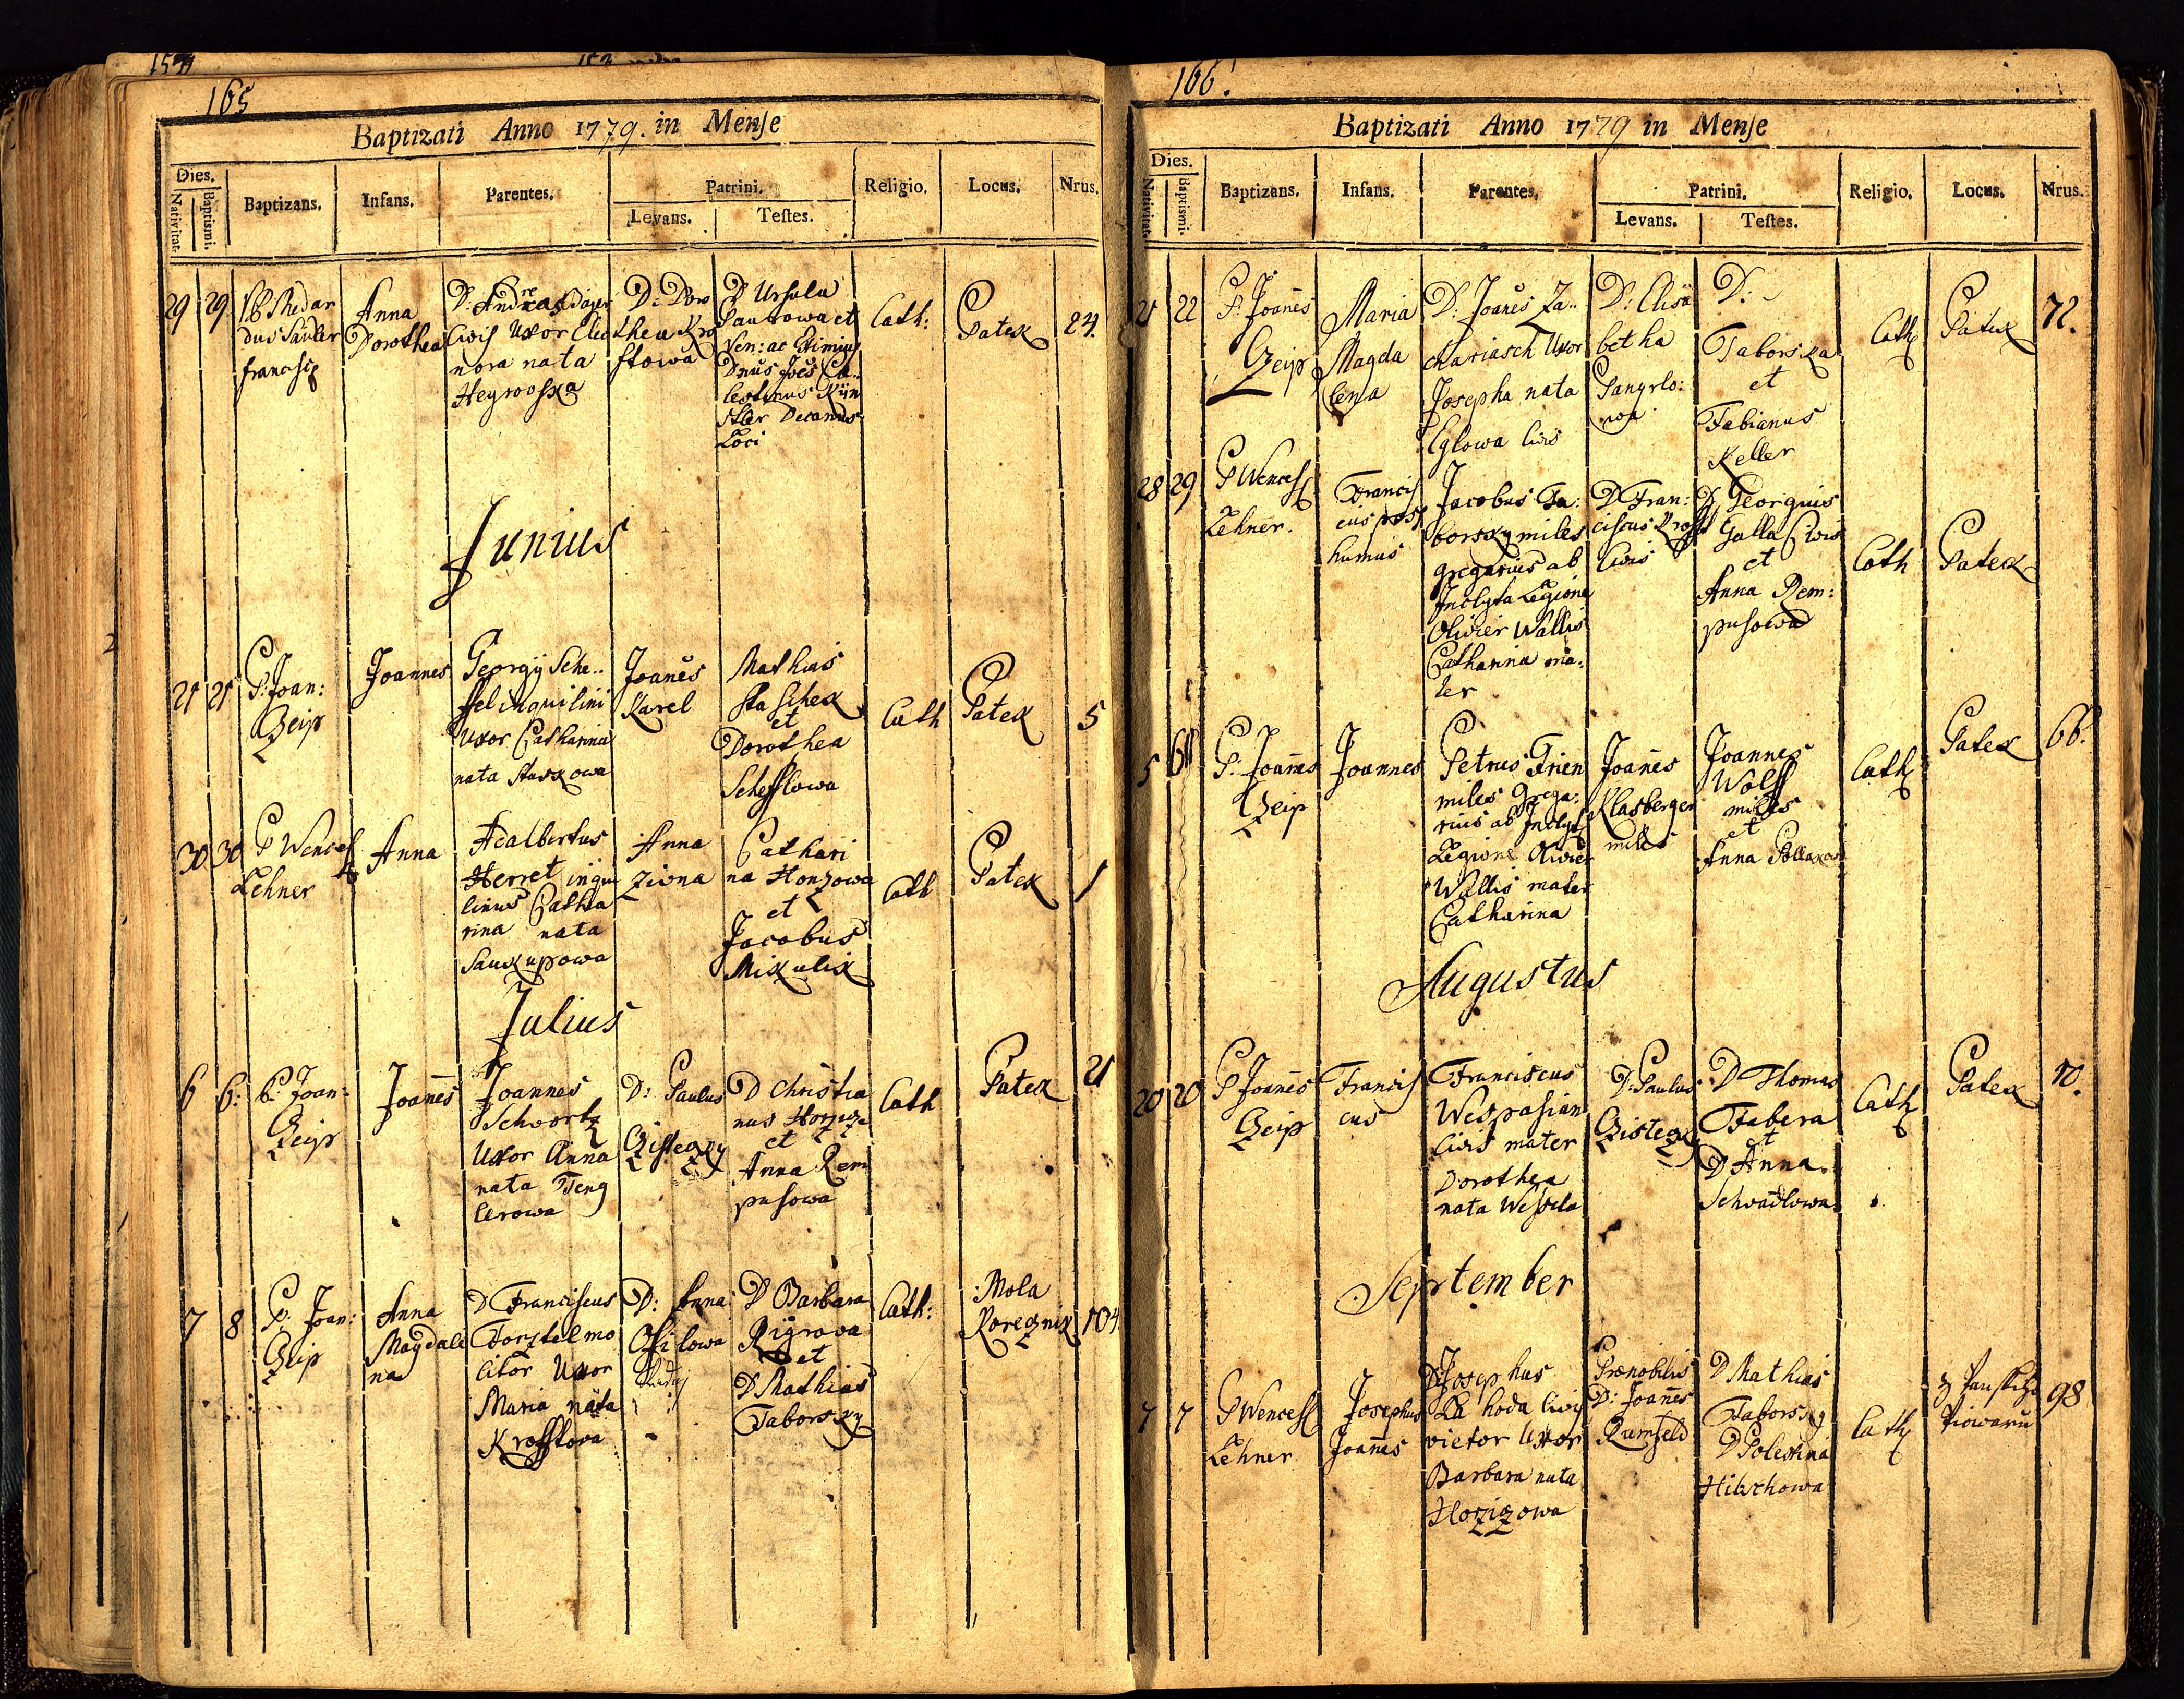 165
Baptizati Anno 1779. in Mense
Dies.
Nativitat.
Baptismi.
Baptizans.
Infans.
Parentes.
Patrini.
Levans.
Testes.
Religio.
Locus.
Nrus.
29 29
Francisc
Anna
Dorothea
Civis Uxor Eleo
nora nata
D: Doro
thea Kro
ftowa
D Ursula
et
Ven: ac
Decanus
Loci
Cath:
Patek
24.
Junius
21 21
P: Joan:
Czeip
Joannes
Georgÿ Sche..
ffel inquilini
Uxor Catharina
nata Starkowa
Joan̄es
Karel
Mathias
Staschek
et
Dorothea
Schefflowa
Cath
Patek
5
30 30
P Wencesl
Lehner
Anna
Adalbertus
Herret inqui
linus Catha
rina nata
Saukupowa
Anna
Zivna
Cathari
na Honzowa
et
Jacobus
Mikulik
Cath
Patek
1
Julius
6 6:
P: Joan:
Czeip
Joan̄es
Joannes
Schvortz
Uxor Anna
nata Teng
lerowa
D: Paulus
Czisteczky
D Christia
nus
et
Anna Rem
pusowa
Cath
Patek
21
7 8
P: Joan:
Czeip
Anna
Magdale
na
D Franciscus
Forstel mo
litor Uxor
Maria nata
Krofftova
D: Anna
D Barbara
Rigrova
et
D Mathias
Taborsky
Cath:
Mola
Koreznik
104
166.
Baptizati Anno 1779 in Mense
Dies.
Nativitat.
Baptismi.
Baptizans.
Infans.
Parentes.
Patrini.
Levans.
Testes.
Religio.
Locus.
Nrus.
21 22
P: Joan̄es
Czeip
Maria
Magda
lena
D: Joan̄es Za..
chariasch Uxor
Josepha nata
Eglowa Civis
D: Elisa
betha
Pangrlo:
wa
D:
Taborska
et
Fabianus
Keller
Cath
Patek
72.
28 29
P Wencesl
Lehner.
Francis
cus post
humus
Jacobus Ta:
borsky miles
gregarius ab
Inclyta Legione
Olivier Wallis
Catharina ma:
ter
D Fran:
ciscus Krofft
Civis
D Georgius
Galla Civis
et
Anna Rem:
pusowa
Cath
Patek
5 6
P: Joan̄es
Czeip
Joannes
Petrus Frien
miles Grega:
rius ab Inclyt
Legione Olivier
Wallis mater
Catharina
Joan̄es
Klasberger
miles
Joannes
Wolff
miles
et
Anna
Cath
Patek
66.
Augustus
20 20
P Joan̄es
Czeip
Francis
cus
Franciscus
Wespasian
Civis mater
Dorothea
nata Wessela
D: Paulus
Czisteczky
D Thomas
Fabera
et
D Anna
Schvadlowa
Cath
Patek
10.
September
7 7
P Wencesl
Lehner
Josephus
Joan̄es
D Josephus
Lahoda Civis
vietor Uxor
Barbara nata
Horzizowa
Prænobilis
D: Joan̄es
Rumfeld
D Mathias
Taborsky
D
Hilschowa
Cath
z Panskiho
Piowaru
98